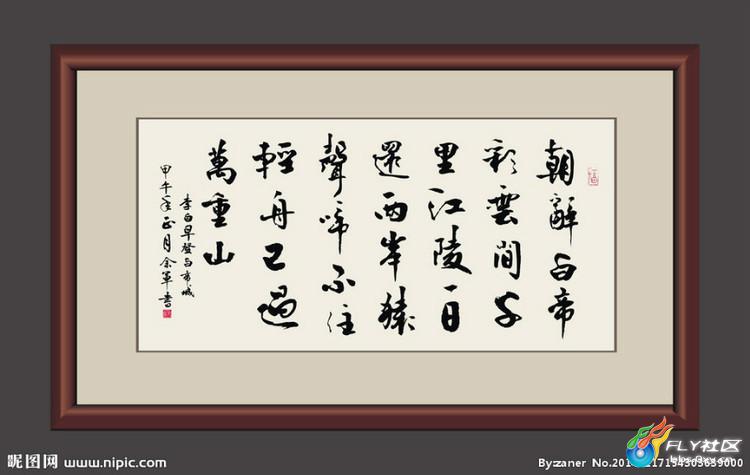 朝辭白帝
彩雲間千
里江陵一日
還兩岸猿
聲啼不住
輕舟已過
萬重山
李白早發白帝城
甲午年正月余軍書
昵图网 www.nipic.com
Byzaner
FLY社区